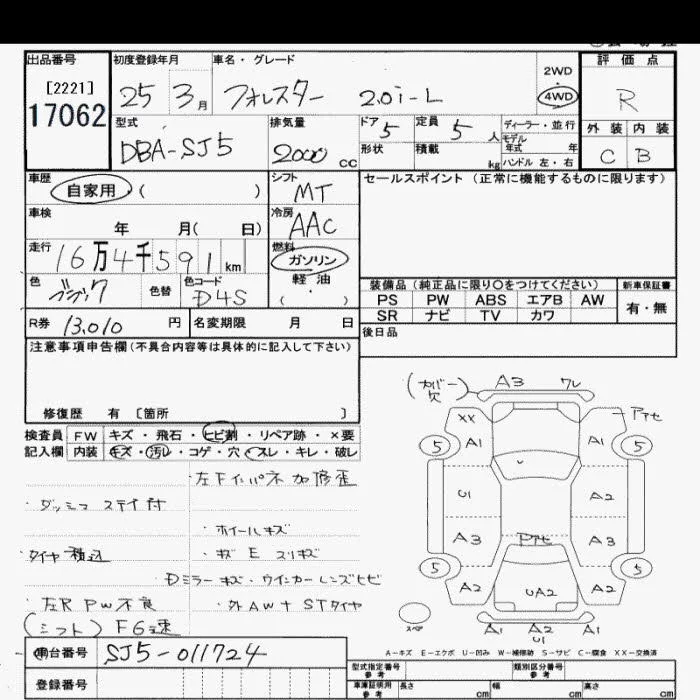 出品番号 初度登録年月 車名・グレード 2WD 評価点
[2221] 25 3月 フォレスター 2.0i-L 4WD R
17062
型式 排気量 ドア 定員 ディーラー・並行 外装 内装
DBA-SJ5 2000cc 5 5人 モデル年式 年 C B
形状 積載 kg ハンドル 左・右
車歴 シフト セールスポイント(正常に機能するものに限ります)
自家用 ( ) MT
車検 冷房
年 月( 日) AAC
走行 燃料
16万4千591km ガソリン
色 色替 色コード 軽油 装備品(純正品に限り〇をつけてください) 新車保証書
ブラック D4S ( ・ ) PS PW ABS エアB AW 有・無
SR ナビ TV カワ
R券 13,010円 名変期限 月 日 後日品
注意事項申告欄(不具合内容等は具体的に記入して下さい)
修復歴 有 〔箇所 〕
検査員 FW キズ・飛石・ヒビ割・リペア跡・×要
記入欄 内装 キズ・汚レ・コゲ・穴・スレ・キレ・破レ
・左Fインパネ加修歪
・ダッシュステイ付
・ホイールキズ
タイヤ積込 ・キズ E スリキズ
Dミラーキズ・ウインカーレンズヒビ
・左R PW不良 ・外AW+STタイヤ
(シフト) F6速
(カバー欠) A3 ワレ
XX アケセ
5 A1 A1 5
U1 A2
A3 アケセ A3
5 5
A2 UA2 A2
スペア A1 A2 A1
U1
A-キズ E-エクボ U-凹み W-補修跡 S-サビ C-腐食 XX-交換済
車台番号 SJ5-011724
登録番号
型式指定番号 参考 類別区分番号 参考
車庫証明用 参考 長さ cm 幅 cm 高さ cm